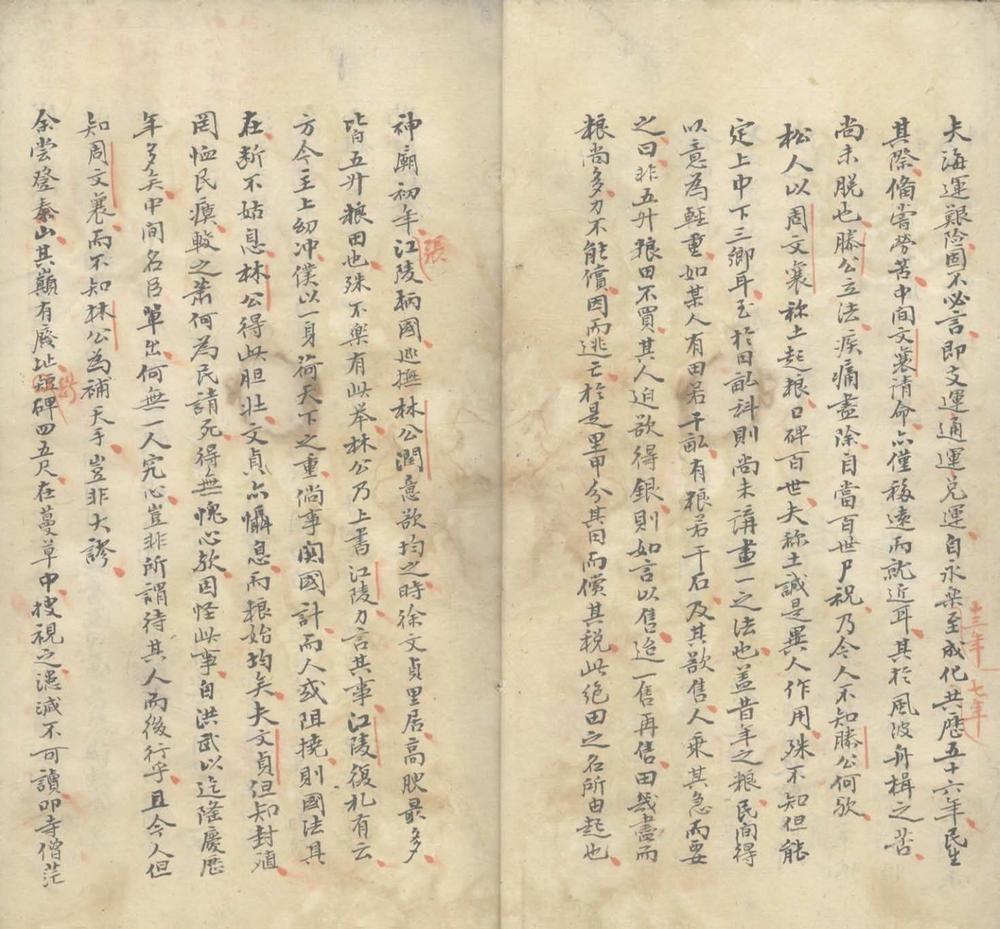 夫海運艱險固不必言即支運逋運兌運自永樂至成化共歷五十六年民生
十三年 七年
其際偹嘗勞苦中間文襄清命亦僅移遠而就近耳其於風波舟楫之苦
尚未脫也滕公立法疾痛盡除自當百世尸祝乃今人不知滕公何歟
松人以周文襄祢土起粮口碑百世夫祢土誠是異人作用殊不知但能
定上中下三鄉耳至於田畝科則尚未講畫一之法也盖昔年之粮民間得
以意為輕重如某人有田若干畝有粮若干石及其欲售人乘其急而要
之曰非五升粮田不買其人迫欲得銀則如言以售迨一售再售田幾盡而
粮尚多力不能償因而逃亡於是里甲分其田而償其稅此絕田之名所由起也
神廟初年江陵柄國廵撫林公潤意欲均之時徐文貞里居高腴最多
張
皆五升粮田也殊不樂有此举林公乃上書江陵力言其事江陵復札有云
方今主上幼冲僕以一身荷天下之重倘事関國計而人或阻撓則國法具
在斷不姑息林公得此胆壯文貞亦懾息而粮始均矣夫文貞但知封殖
罔恤民瘼較之萧何為民請死得無愧心歟因怪此事自洪武以迄隆慶歷
年多矣中間名臣輩出何無一人究心豈非所謂待其人而後行乎且今人但
知周文襄而不知林公為補天手豈非大謬
余嘗登秦山其巔有廢址短碑四五尺在蔓草中搜視之漶滅不可讀叩寺僧茫